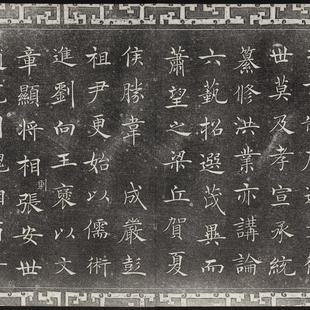 世莫及孝宣承統
纂修洪業亦講論
六藝招選茂異而
蕭望之梁丘賀夏
侯勝韋 成嚴彭
祖尹更始以儒術
進劉向王褒以文
章顯將相則張安世